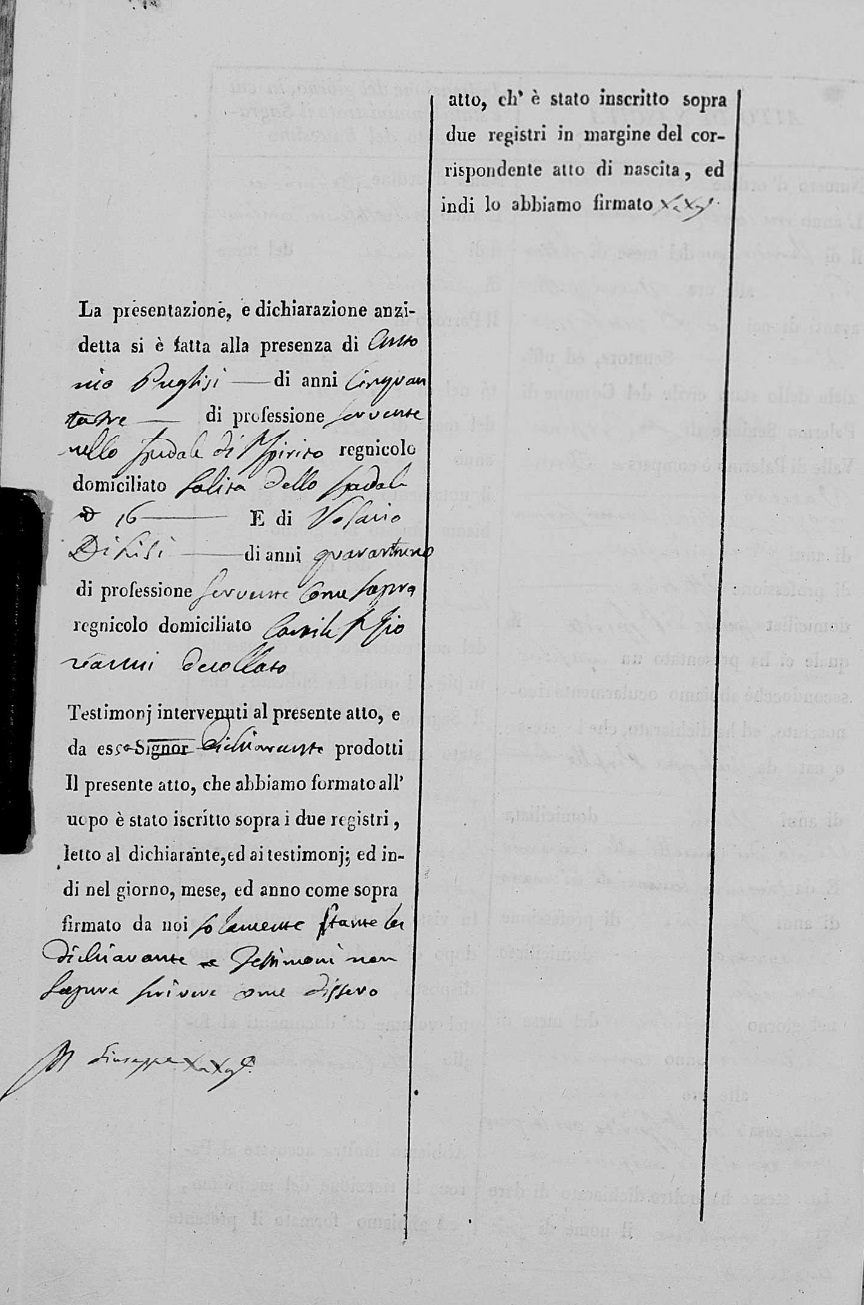 La presentazione, e dichiarazione anzi-
detta si è fatta alla presenza di Anto
nio Puglisi — di anni Cinquan
tatre — di professione servente
nello spedale di S. Spirito regnicolo
domiciliato Salita dello spedale
16 — E di Rosario
— di anni quarantuno
di professione servente come sopra
regnicolo domiciliato Cortile S. Gio
vanni decollato
Testimonj intervenuti al presente atto, e
da esso Signor dichiarante prodotti
Il presente atto, che abbiamo formato all'
uopo è stato iscritto sopra i due registri,
letto al dichiarante, ed ai testimonj; ed in-
di nel giorno, mese, ed anno come sopra
firmato da noi solamente stante la
dichiarante e Testimoni non
sapere scrivere come dissero
Giuseppe
atto, ch' è stato inscritto sopra
due registri in margine del cor-
rispondente atto di nascita, ed
indi lo abbiamo firmato